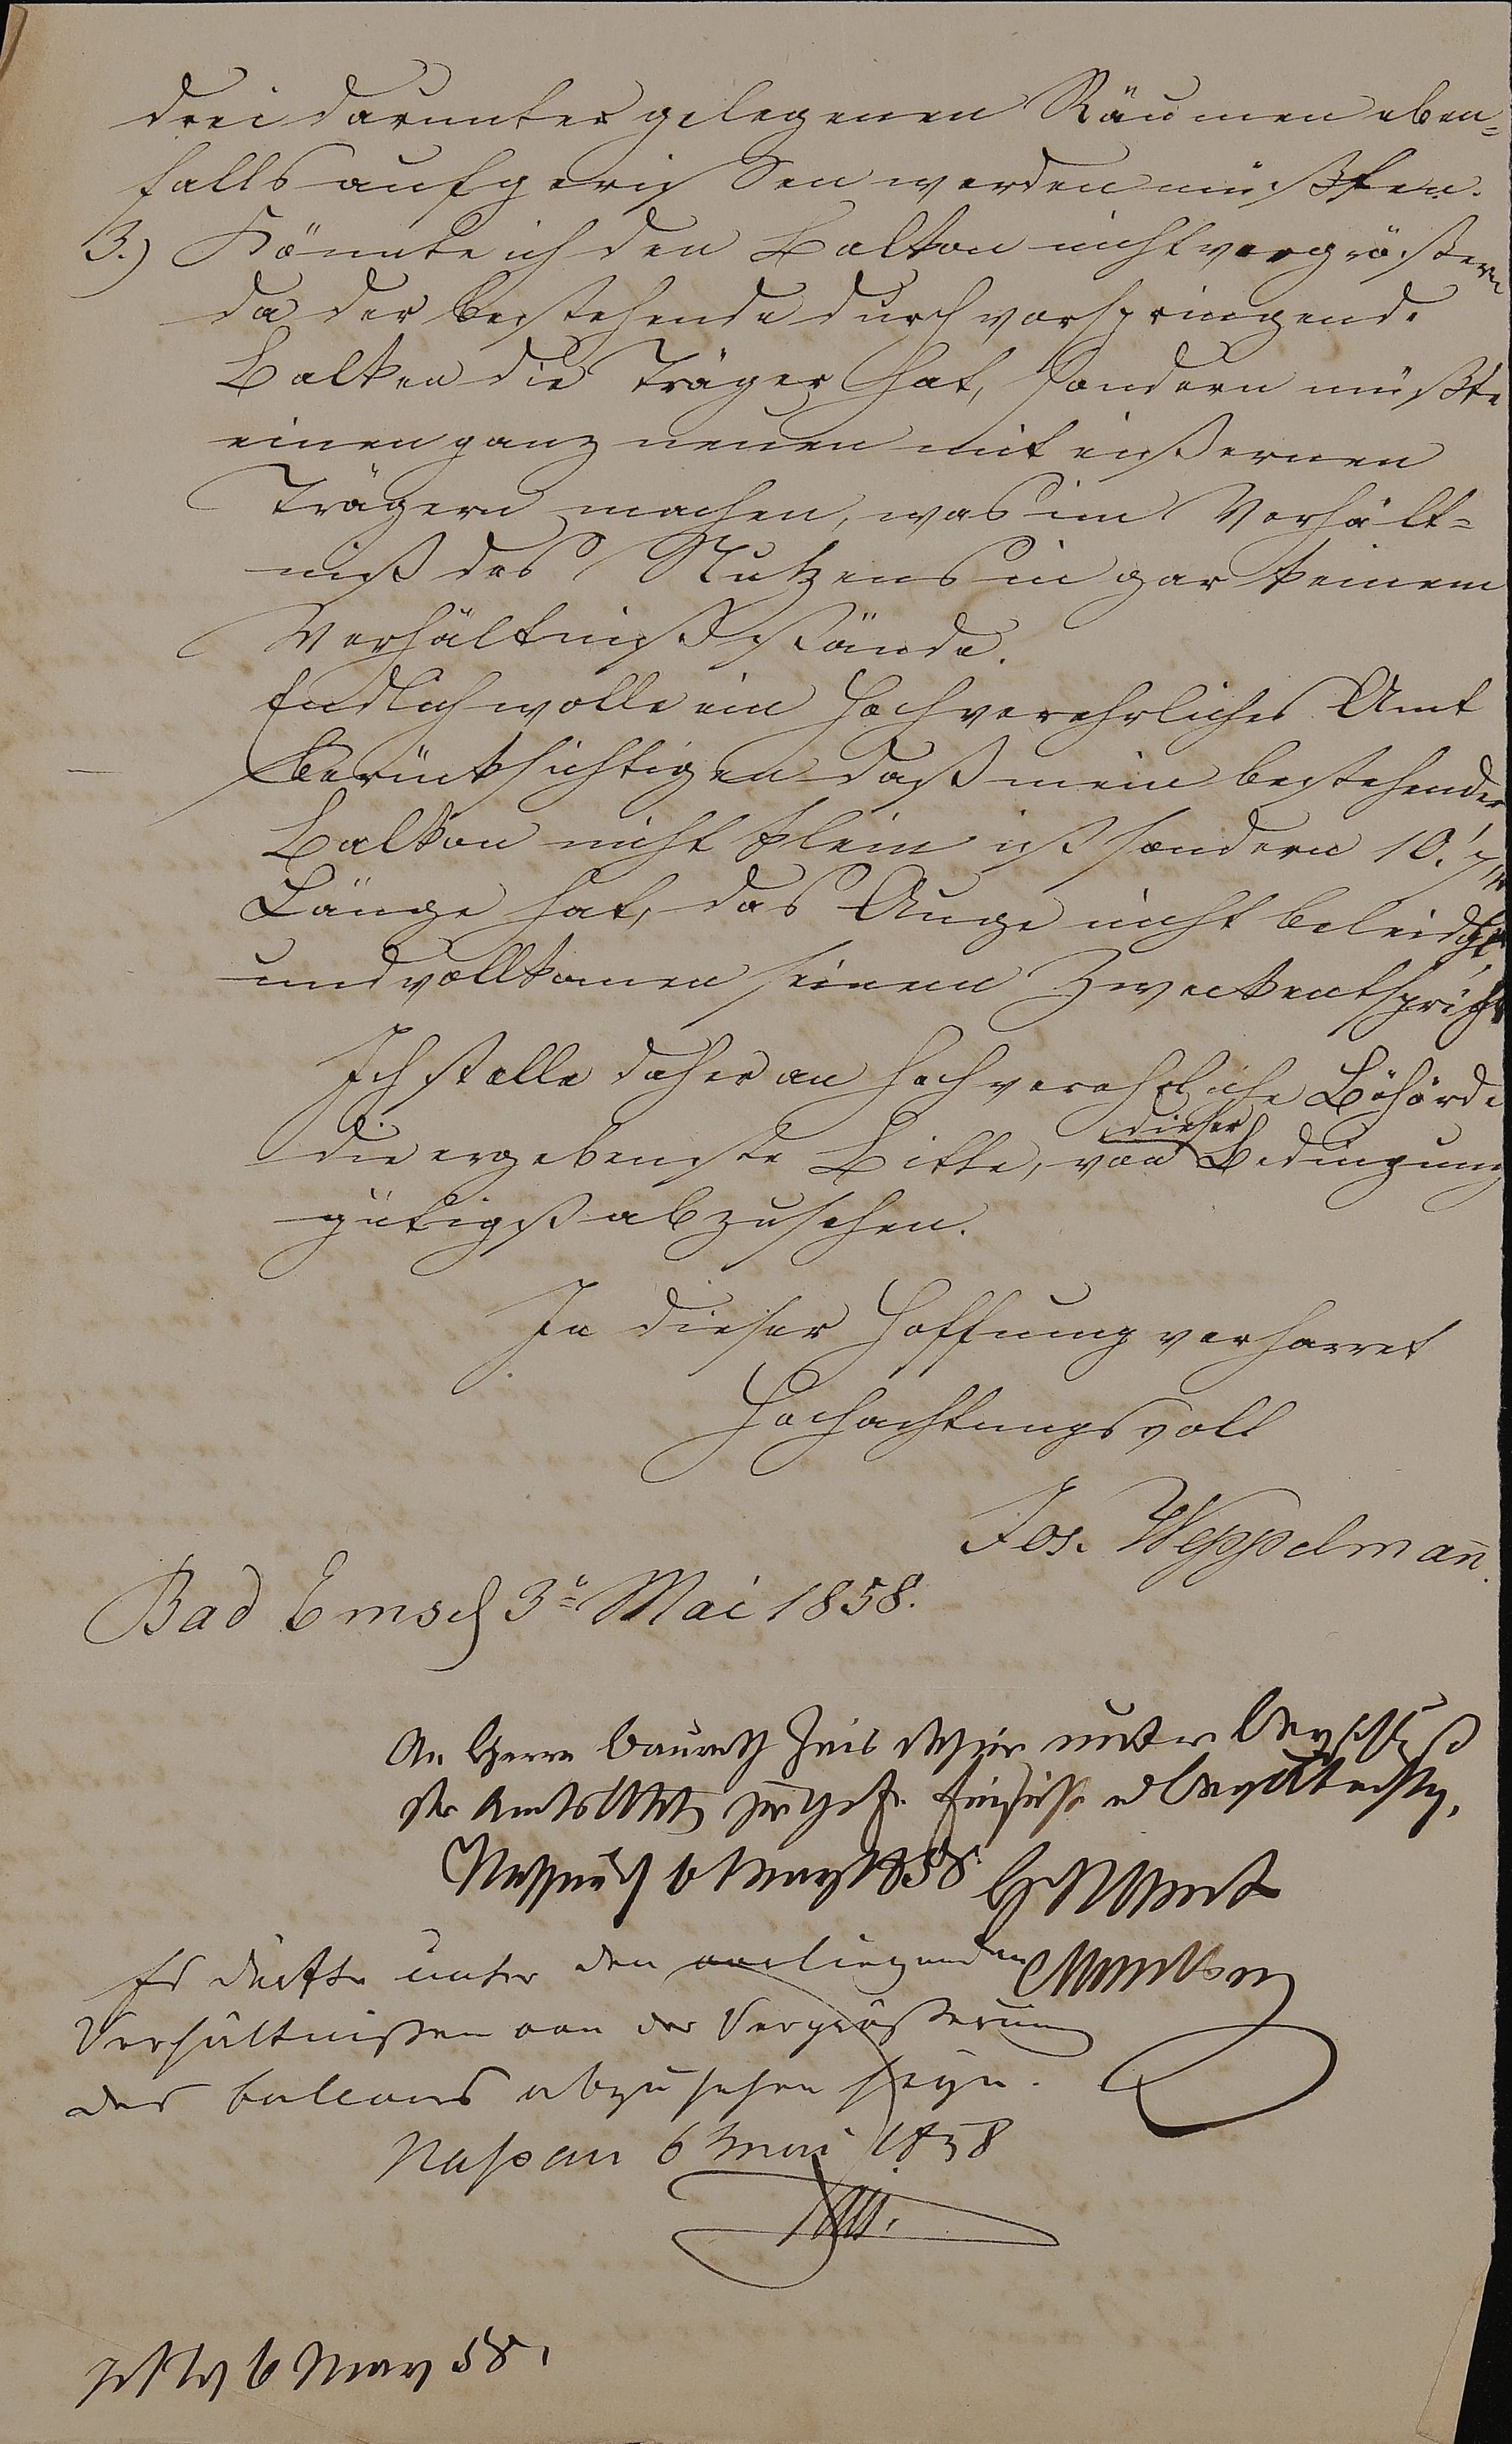 drei darunter gelegenen Räumen eben=
falls aufgerissen werden müßten.
3.) Könnte ich den Balkon nicht vergrößern
da der bestehende durch vorspringende
Balken die Träger hat, sondern müßte
einen ganz neuen mit eißernen
Trägern machen, was im Verhält=
niß des Nutzens in gar keinem
Verhältniß stände.
Endlich wolle ein Hochverehrliches Amt
berücksichtigen daß mein bestehender
Balkon nicht klein ist sondern 10.' 7"
Länge hat, das Auge nicht beleidigt,
und vollkomen seinem Zweck entspricht
Ich stelle daher an hochverehrliche Behörde
die ergebenste Bitte, von dieser Bedingung
gütigst abzusehen.
In dieser Hoffnung verharret
Hochachtungsvoll
Jos. Weppelman̄.
Bad Ems d 3t Mai 1858.
An Herrn Baurath hier unter Beyschluß
der zur Einsicht u
Nassau d 6 May 1858.
Es dürfte unter den vorliegenden
Verhältnißen von der Vergrößerung
des balcons abzusehen seyn.
Nassau 6 Mai 1858
6 May 58.